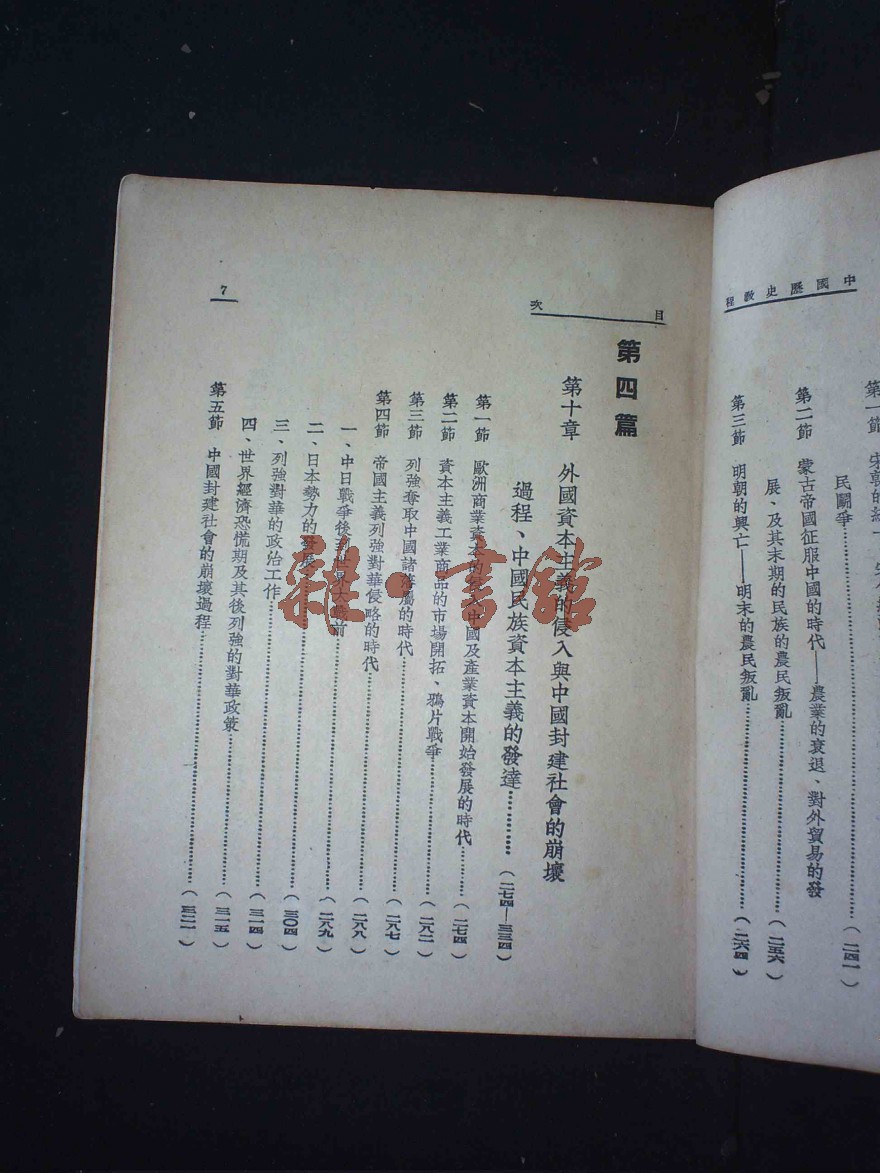 中國歷史教程
民鬭爭………………(二四一)
第二節 蒙古帝國征服中國的時代——農業的衰退、對外貿易的發
展、及其末期的民族的農民叛亂………………(二五六)
第三節 明朝的興亡——明末的農民叛亂………………(二六四)
目次
第四篇
第十章 外國資本主義的侵入與中國封建社會的崩壞
過程、中國民族資本主義的發達………(二七四—三三四)
第一節 歐洲商業資本的侵入中國及產業資本開始發展的時代……(二七四)
第二節 資本主義工業商品的市場開拓、鴉片戰爭………………(二八二)
第三節 列強奪取中國諸藩屬的時代………………(二八七)
第四節 帝國主義列強對華侵略的時代………………(二八八)
一、中日戰爭後到世界大戰前………………(二八九)
二、日本勢力的發展………………(三〇四)
三、列強對華的政治工作………………(三一四)
四、世界經濟恐慌期及其後列強的對華政策………………(三一五)
第五節 中國封建社會的崩壞過程………………(三二一)
7
雜·書館